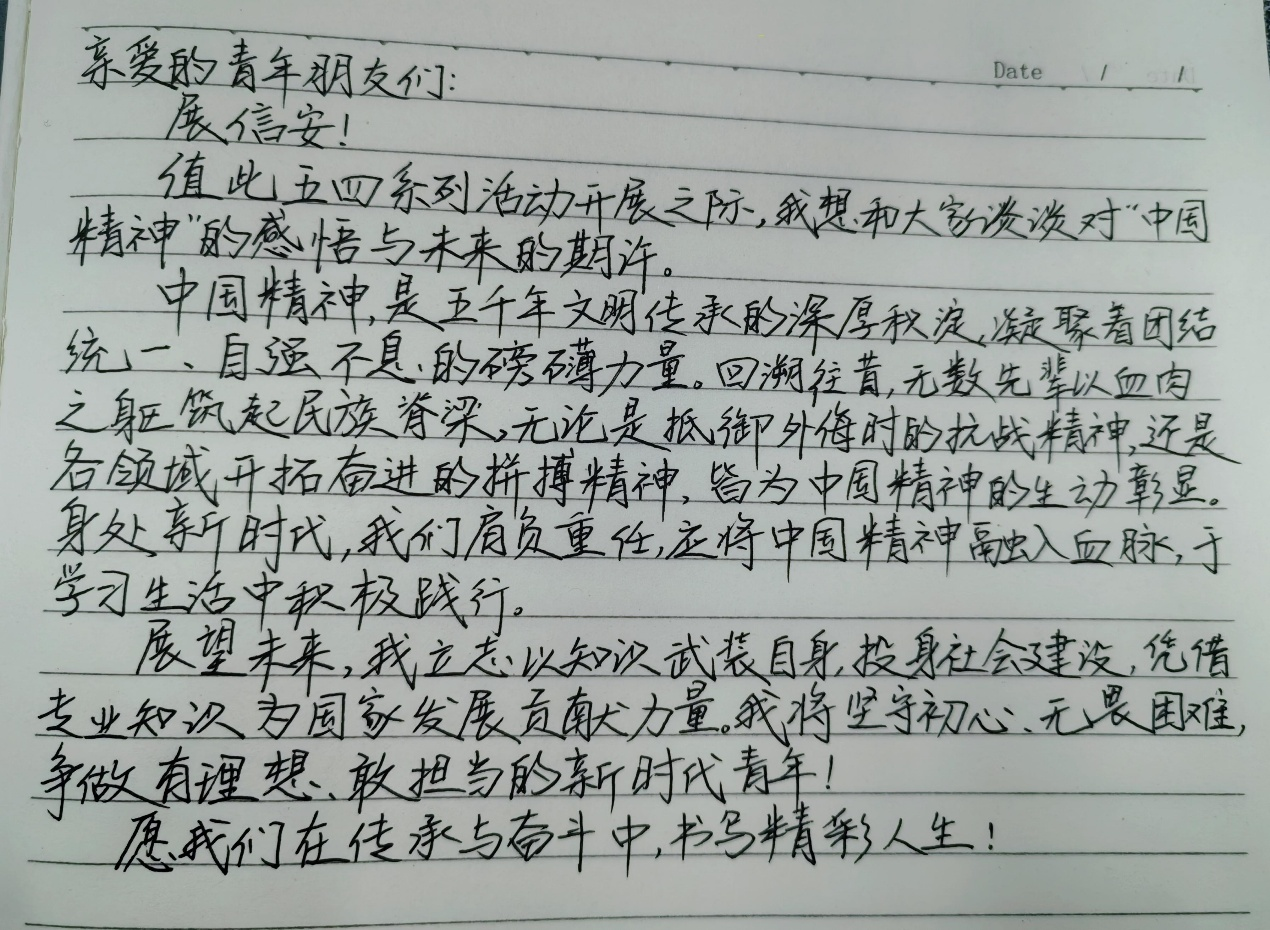 Date / /
亲爱的青年朋友们:
展信安!
值此五四系列活动开展之际,我想和大家谈谈对“中国
精神”的感悟与未来的期许。
中国精神,是五千年文明传承的深厚积淀,凝聚着团结
统一、自强不息的磅礴力量。回溯往昔,无数先辈以血肉
之躯筑起民族脊梁,无论是抵御外侮时的抗战精神,还是
各领域开拓奋进的拼搏精神,皆为中国精神的生动彰显。
身处新时代,我们肩负重任,应将中国精神融入血脉,于
学习生活中积极践行。
展望未来,我立志以知识武装自身,投身社会建设,凭借
专业知识为国家发展贡献力量。我将坚守初心、无畏困难,
争做有理想、敢担当的新时代青年!
愿我们在传承与奋斗中,书写精彩人生!